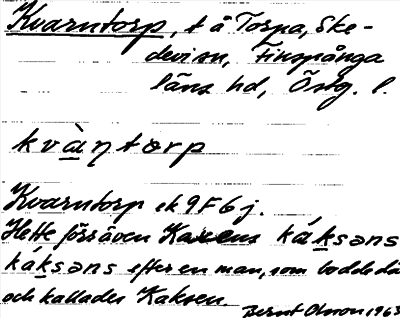 Kvarntorp, t å Torpa, Ske-
devi sn, Finspånga
läns hd, Östg. l.
kvàŋtorp
Kvarntorp ek 9F6j.
Hette förr även Kaxens káksəns
káksəns efter en man, som bodde då
och kallades Kaksen
Bernt Olsson 1963